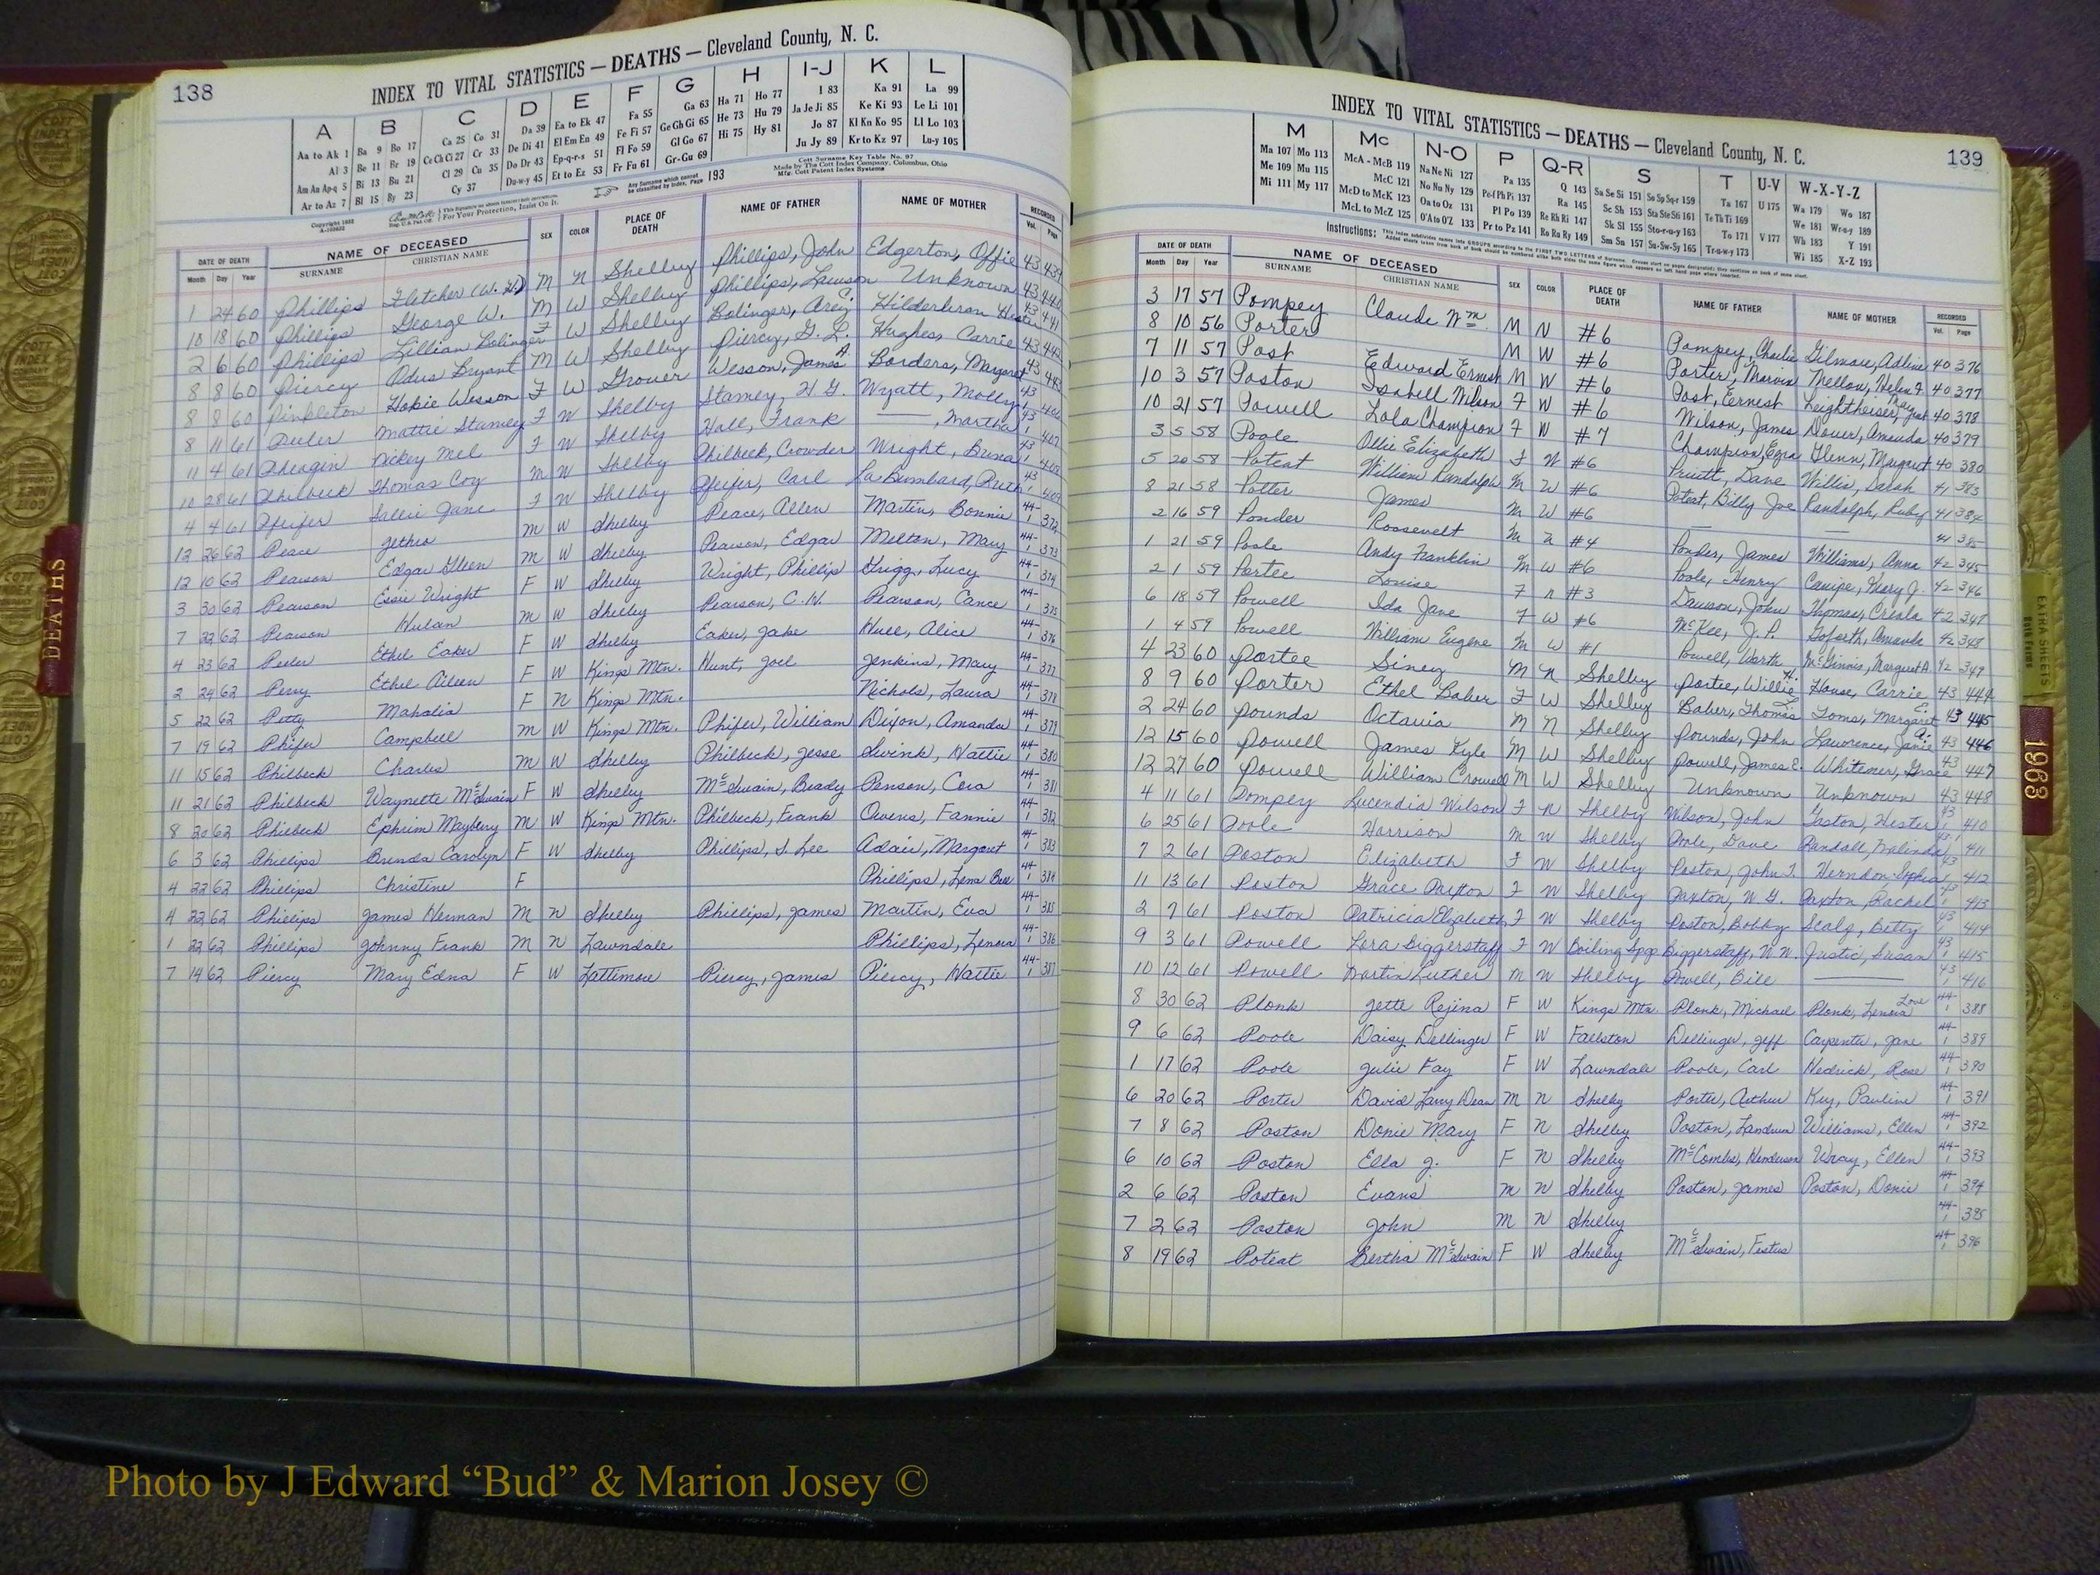 138
INDEX TO VITAL STATISTICS — DEATHS — Cleveland County, N. C.
A B C D E F G H I-J K L
Aa to Ak 1 Ba 9 Bo 17 Ca 25 Co 31 Da 39 Ea to Ek 47 Fa 55 Ga 63 Ha 71 Ho 77 I 83 Ka 91 La 99
Al 3 Be 11 Br 19 Ce Ch Ci 27 Cr 33 De Di 41 El Em En 49 Fe Fi 57 Ge Gh Gi 65 He 73 Hu 79 Ja Je Ji 85 Ke Ki 93 Le Li 101
Am An Ap-q 5 Bi 13 Bu 21 Cl 29 Cu 35 Do Dr 43 Ep-q-r-s 51 Fl Fo 59 Gl Go 67 Hi 75 Hy 81 Jo 87 Kl Kn Ko 95 Ll Lo 103
Ar to Az 7 Bl 15 By 23 Cy 37 Du-w-y 45 Et to Ez 53 Fr Fu 61 Gr-Gu 69 Ju Jy 89 Kr to Kz 97 Lu-y 105
Cott Surname Key Table No. 97
Made by The Cott Index Company, Columbus, Ohio
Mfg. Cott Patent Index Systems
Any Surname which cannot be classified by Index, Page 193
For Your Protection, Insist On It.
DATE OF DEATH NAME OF DECEASED SEX COLOR PLACE OF DEATH NAME OF FATHER NAME OF MOTHER RECORDED
Month Day Year SURNAME CHRISTIAN NAME Vol. Page
1 24 60 Phillips Fletcher (W. H.) M N Shelby Phillips, John Edgerton, Offie 43 439
10 18 60 Phillips George W. M W Shelby Phillips, Lawson Unknown 43 440
2 6 60 Phillips Lillian Bolinger F W Shelby Bolinger, C. Hilderbran 43 441
8 8 60 Piercy Odus Bryant M W Shelby Piercy, G. L. Hughes, Carrie 43 442
8 8 60 Pinkleton Hokie Wesson F W Grover Wesson, James A. Borders, Margaret 43 443
8 11 61 Peeler Mattie Stamey F W Shelby Stamey, H. G. Wyatt, Molly 43 1 406
11 4 61 Pheagin Dickey Mel F W Shelby Hall, Frank ——, Martha 43 1 407
10 28 61 Philbeck Thomas Coy M W Shelby Philbeck, Crowder Wright, Buna 43 1 408
4 4 61 Pfeifer Sallie Jane F W Shelby Pfeifer, Carl La Bumbard, Ruth 43 1 409
12 26 62 Peace Jethro M W Shelby Peace, Allen Martin, Bonnie 44-1 372
12 10 62 Pearson Edgar Gleen M W Shelby Pearson, Edgar Melton, Mary 44-1 373
3 30 62 Pearson Essie Wright F W Shelby Wright, Phillip Grigg, Lucy 44-1 374
7 22 62 Pearson Hulan M W Shelby Pearson, C. N. Pearson, Cance 44-1 375
4 23 62 Peeler Ethel Eaker F W Shelby Eaker, Jake Hull, Alice 44-1 376
2 24 62 Perry Ethel Aileen F W Kings Mtn. Hunt, Joel Jenkins, Mary 44-1 377
5 22 62 Petty Mahalia F N Kings Mtn. Nichols, Laura 44-1 378
7 19 62 Phifer Campbell M W Kings Mtn. Phifer, William Dixon, Amanda 44-1 379
11 15 62 Philbeck Charles M W Shelby Philbeck, Jesse Swink, Hattie 44-1 380
11 21 62 Philbeck Waynette McSwain F W Shelby McSwain, Beady Penson, Cora 44-1 381
8 20 62 Philbeck Ephrim Maybury M W Kings Mtn. Philbeck, Frank Owens, Fannie 44-1 382
6 3 62 Phillips Brenda Carolyn F W Shelby Phillips, S. Lee Adair, Margaret 44-1 383
4 22 62 Phillips Christine F Phillips, Lena Bell 44-1 384
4 22 62 Phillips James Herman M N Shelby Phillips, James Martin, Eva 44-1 385
1 22 62 Phillips Johnny Frank M N Lawndale Phillips, Lenora 44-1 386
7 14 62 Piercy Mary Edna F W Lattimore Piercy, James Piercy, Hattie 44-1 387
139
INDEX TO VITAL STATISTICS — DEATHS — Cleveland County, N. C.
M Mc N-O P Q-R S T U-V W-X-Y-Z
Ma 107 Mo 113 McA - McB 119 Na Ne Ni 127 Pa 135 Q 143 Sa Se Si 151 So Sp Sq-r 159 Ta 167 U 175 Wa 179 Wo 187
Me 109 Mu 115 McC 121 No Nu Ny 129 Pe-f Ph Pi 137 Ra 145 Sc Sh 153 Sta Ste Sti 161 Te Th Ti 169 We 181 Wr-u-y 189
Mi 111 My 117 McD to McK 123 Oa to Oz 131 Pl Po 139 Re Rh Ri 147 Sk Sl 155 Sto-r-u-y 163 To 171 V 177 Wh 183 Y 191
McL to McZ 125 O'A to O'Z 133 Pr to Pz 141 Ro Ru Ry 149 Sm Sn 157 Su-Sw-Sy 165 Tr-u-w-y 173 Wi 185 X-Z 193
DATE OF DEATH NAME OF DECEASED SEX COLOR PLACE OF DEATH NAME OF FATHER NAME OF MOTHER RECORDED
Month Day Year SURNAME CHRISTIAN NAME Vol. Page
3 17 57 Pompey Claude Wm. M N #6 Pompey, Charlie Gilmore, Adline 40 376
8 10 56 Porter M W #6 Porter, Marvin Mellon, Helen F. 40 377
7 11 57 Post Edward Ernest M W #6 Post, Ernest Leightheiser, Margaret 40 378
10 3 57 Poston Isabell Wilson F W #6 Wilson, James Dover, Amanda 40 379
10 21 57 Powell Lola Champion F W #7 Champion, Ezra Glenn, Margaret 40 380
3 5 58 Poole Ollie Elizabeth F W #6 Pruitt, Dave Willis, Sarah 41 383
5 20 58 Poteat William Randolph M W #6 Poteat, Billy Joe Randolph, Ruby 41 384
8 21 58 Potter James M W #6 —— 41 385
2 16 59 Ponder Roosevelt M N #4 Ponder, James Williams, Anna 42 345
1 21 59 Poole Andy Franklin M W #6 Poole, Henry Canipe, Mary J. 42 346
2 1 59 Portee Louise F N #3 Dawson, John Thomas, Creola 42 347
6 18 59 Powell Ida Jane F W #6 McKee, J. P. Goforth, Amanda 42 348
1 4 59 Powell William Eugene M W #1 Powell, Worth McGinnis, Margaret A. 42 349
4 23 60 Portee Siney M N Shelby Portee, Willie House, Carrie 43 444
8 9 60 Porter Ethel Baber F W Shelby Baber, Thomas Toms, Margaret E. 43 445
2 24 60 Pounds Octavia M N Shelby Pounds, John Lawrence, Janie 43 446
12 15 60 Powell James Kyle M W Shelby Powell, James E. Whitener, Grace 43 447
12 27 60 Powell William Crowell M W Shelby Unknown Unknown 43 448
4 11 61 Pompey Lucendia Wilson F N Shelby Wilson, John Gaston, Hester 43 1 410
6 25 61 Poole Harrison M W Shelby Poole, Dave Randall, Malinda 43 1 411
7 2 61 Poston Elizabeth F W Shelby Poston, John T. Herndon Sophia 43 1 412
11 13 61 Poston Grace Paxton F W Shelby Paxton, W. G. Paxton, Rachel 43 1 413
2 7 61 Poston Patricia Elizabeth F W Shelby Poston, Bobby Scalf, Betty 43 1 414
9 3 61 Powell Lora Biggerstaff F W Boiling Spgs Biggerstaff, W. N. Justic, Susan 43 1 415
10 12 61 Powell Martin Luther M W Shelby Powell, Bill —— 43 1 416
8 30 62 Plonk Jette Rejina F W Kings Mtn. Plonk, Michael Plonk, Lenora Love 44-1 388
9 6 62 Poole Daisy Dellinger F W Fallston Dellinger, Jeff Carpenter, Jane 44-1 389
1 17 62 Poole Julie Fay F W Lawndale Poole, Carl Hedrick, Rose 44-1 390
6 20 62 Porter David Larry Dean M N Shelby Porter, Arthur Key, Pauline 44-1 391
7 8 62 Poston Donie Mary F N Shelby Poston, Landrum Williams, Ellen 44-1 392
6 10 62 Poston Ella J. F N Shelby McCombs, Henderson Wray, Ellen 44-1 393
2 6 62 Poston Evans M N Shelby Poston, James Poston, Donie 44-1 394
7 2 62 Poston John M N Shelby 44-1 395
8 19 62 Poteat Bertha McSwain F W Shelby McSwain, Festus 44-1 396
DEATHS
EXTRA SHEETS
1963
COTT INDEX
Photo by J Edward “Bud” & Marion Josey ©